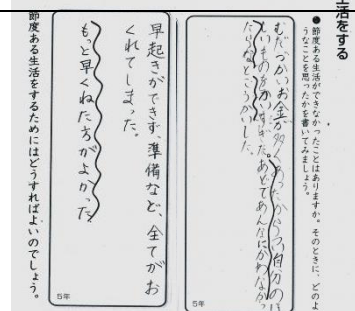 生活をする
●節度ある生活ができなかったことはありますか。そのときに、どのよ
うなことを思ったかを書いてみましょう。
むだづかいお金が多くあったからつい自分のほ
しいものを買いすぎた。あとであんなにかわなかっ
たらなとこうかいした。
5年
早起きができず、準備など、全てがお
くれてしまった。
もっと早くねた方がよかった
5年
節度ある生活をするためにはどうすればよいのでしょう。